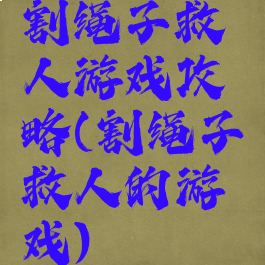 割绳子救
人游戏攻
略(割绳子
救人的游
戏)